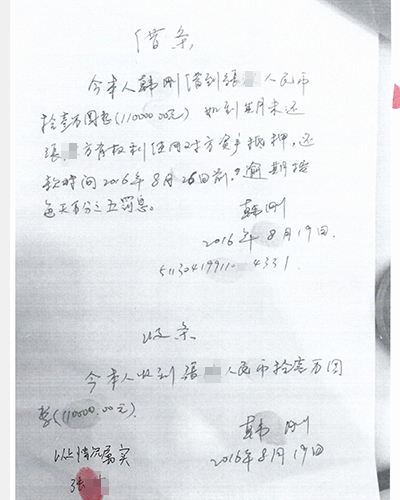 借条
今本人韩刚借到张 人民币
拾壹万圆整(110000.00元) 如到期未还
张 方有权利使用对方资产抵押,还
款时间2016年8月26日前,逾期按
每天百分之五罚息。
韩刚
2016年8月19日
5113041991 10 4331
收条
今本人收到张 人民币拾壹万圆
整(110000.00元)
韩刚
2016年8月19日
以上情况属实
张